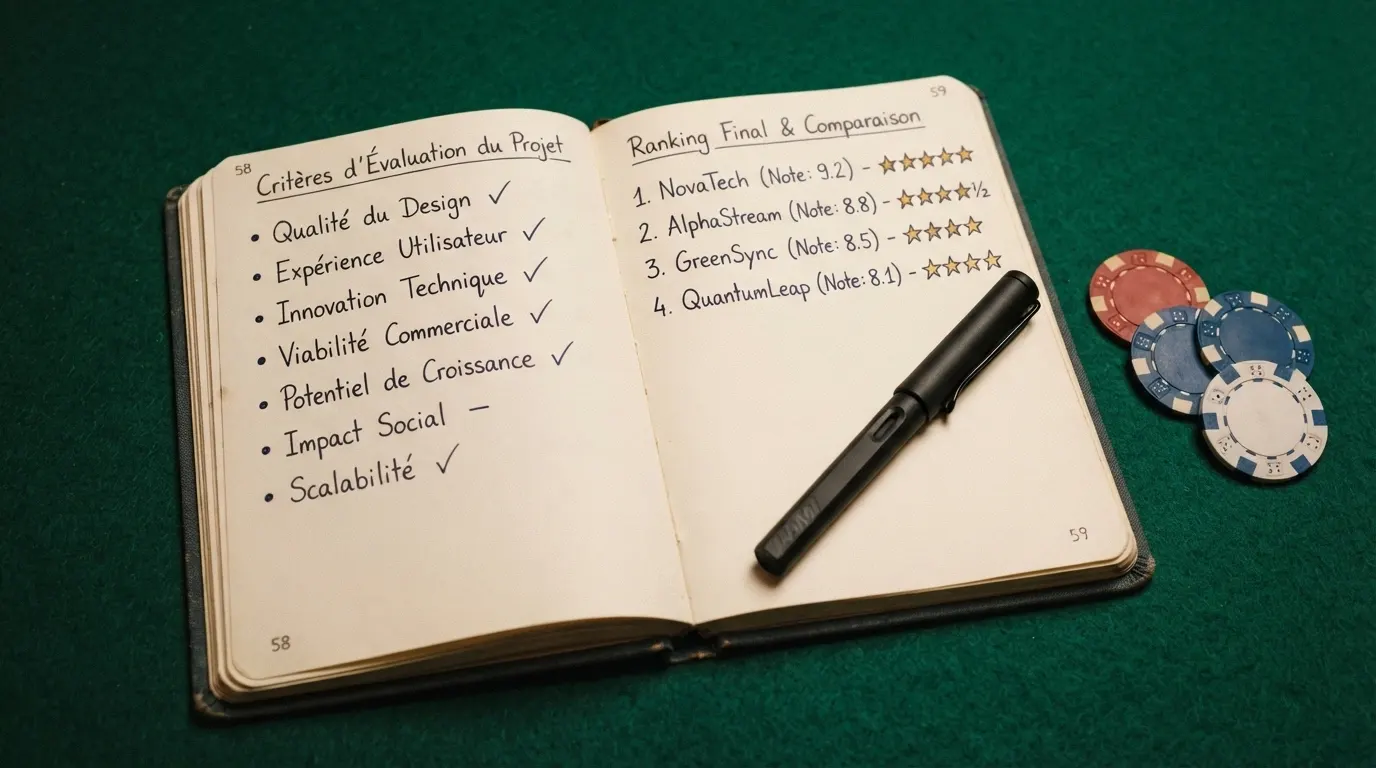 58
Critères d'Évaluation du Projet
• Qualité du Design ✓
• Expérience Utilisateur ✓
• Innovation Technique ✓
• Viabilité Commerciale ✓
• Potentiel de Croissance ✓
• Impact Social –
• Scalabilité ✓
58
59
Ranking Final & Comparaison
1. NovaTech (Note: 9.2) - ★★★★★
2. AlphaStream (Note: 8.8) - ★★★★½
3. GreenSync (Note: 8.5) - ★★★★
4. QuantumLeap (Note: 8.1) - ★★★★
59